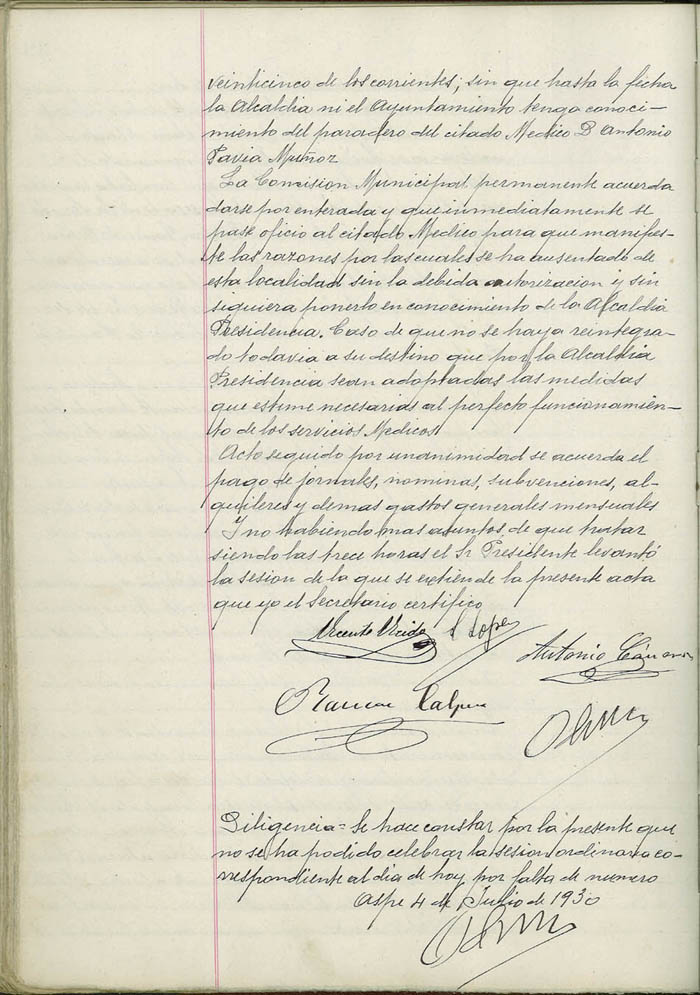 veinticinco de los corrientes; sin que hasta la ficha
la Alcaldia ni el Ayuntamiento tenga conoci-
miento del paradero del citado Medico D Antonio
Pavia Muñoz
La Comision Municipal permanente acuerda
darse por enterada y que inmediatamente se
pase oficio al citado Medico para que manifies-
te las razones por las cuales se ha ausentado de
esta localidad sin la debida autorizacion y sin
siguiera ponerlo en conocimiento de la Alcaldia
Presidencia. Caso de que no se haya reintegra-
do todavia a su destino que por la Alcaldia
Presidencia sean adoptadas las medidas
que estime necesarias al perfecto funcionamien-
to de los servicios Medicos
Acto seguido por unanimidad se acuerda el
pago de jornales, nominas, subvenciones, al-
quileres y demas gastos generales mensuales
Y no habiendo mas asuntos de que tratar
siendo las trece horas el Sr Presidente levantó
la sesion de la que se extiende la presente acta
que yo el Secretario certifico
Vicente S Lopez
Antonio
Ramon Calpena
Diligencia = Se hace constar por la presente que
no se ha podido celebrar la sesion ordinaria co-
rrespondiente al dia de hoy por falta de numero
Aspe 4 de Julio de 1930